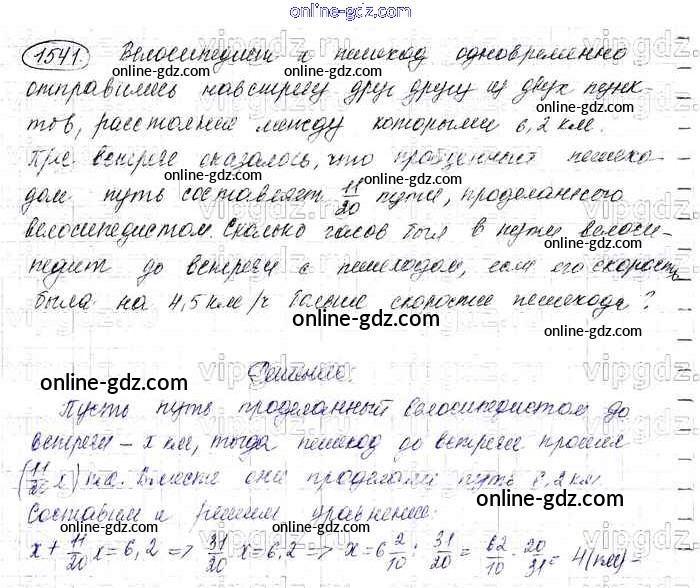 online-gdz.com
1541. Велосипедист и пешеход одновременно
online-gdz.com
отправились навстречу друг другу из двух пунк-
тов, расстояние между которыми 6,2 км.
При встрече оказалось, что пройденный пешехо-
дом путь составляет 11/20 пути, проделанного
велосипедистом. Сколько часов был в пути велоси-
педист до встречи с пешеходом, если его скорость
была на 4,5 км/ч больше скорости пешехода?
online-gdz.com
Решение.
online-gdz.com
Пусть путь проделанный велосипедистом до
встречи – x км, тогда пешеход до встречи прошел
(11/20 x) км. Вместе они проделали путь 6,2 км.
online-gdz.com
Составим и решим уравнение:
x + 11/20 x = 6,2 => 31/20 x = 6,2 => x = 6 2/10 : 31/20 = 62/10 · 20/31 = 4 (км) –